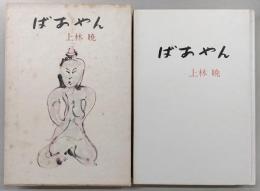 ばあやん
上林 暁
ばあやん
上林 暁